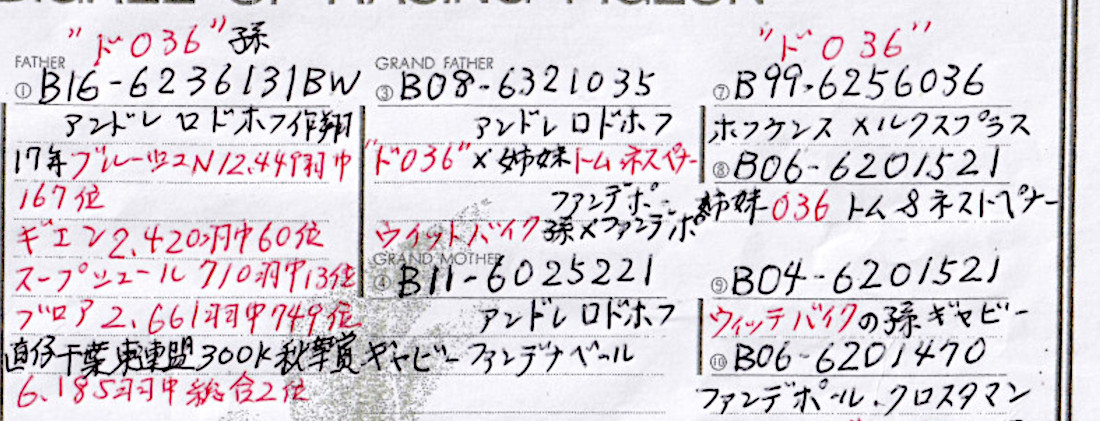 "ド036"孫
FATHER
① B16-6236131BW
アンドレ ロドホフ作翔
17年ブルージュN12.449羽中
167位
ギエン2.420羽中60位
スープジュール 710羽中13位
ブロア2.661羽中749位
直仔千葉東連盟300K秋華賞
6.185羽中総合2位
GRAND FATHER
③ B08-6321035
アンドレ ロドホフ
"ド036"×姉妹トム.ネスペナー
ファンデポー
ウィットバイク孫×ファンデポ
GRAND MOTHER
④ B11-6025221
アンドレ ロドホフ
ギャビーファンデナベール
"ド036"
⑦ B99-6256036
ホフケンス メルクスプラス
⑧ B06-6201521
姉妹036 トム&ネストペナー
⑨ B04-6201521
ウィッテバイクの孫ギャビー
⑩ B06-6201470
ファンデポール.クロスタマン